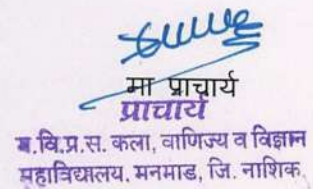 मा प्राचार्य
प्राचार्य
म.वि.प्र.स. कला, वाणिज्य व विज्ञान
महाविद्यालय, मनमाड, जि. नाशिक